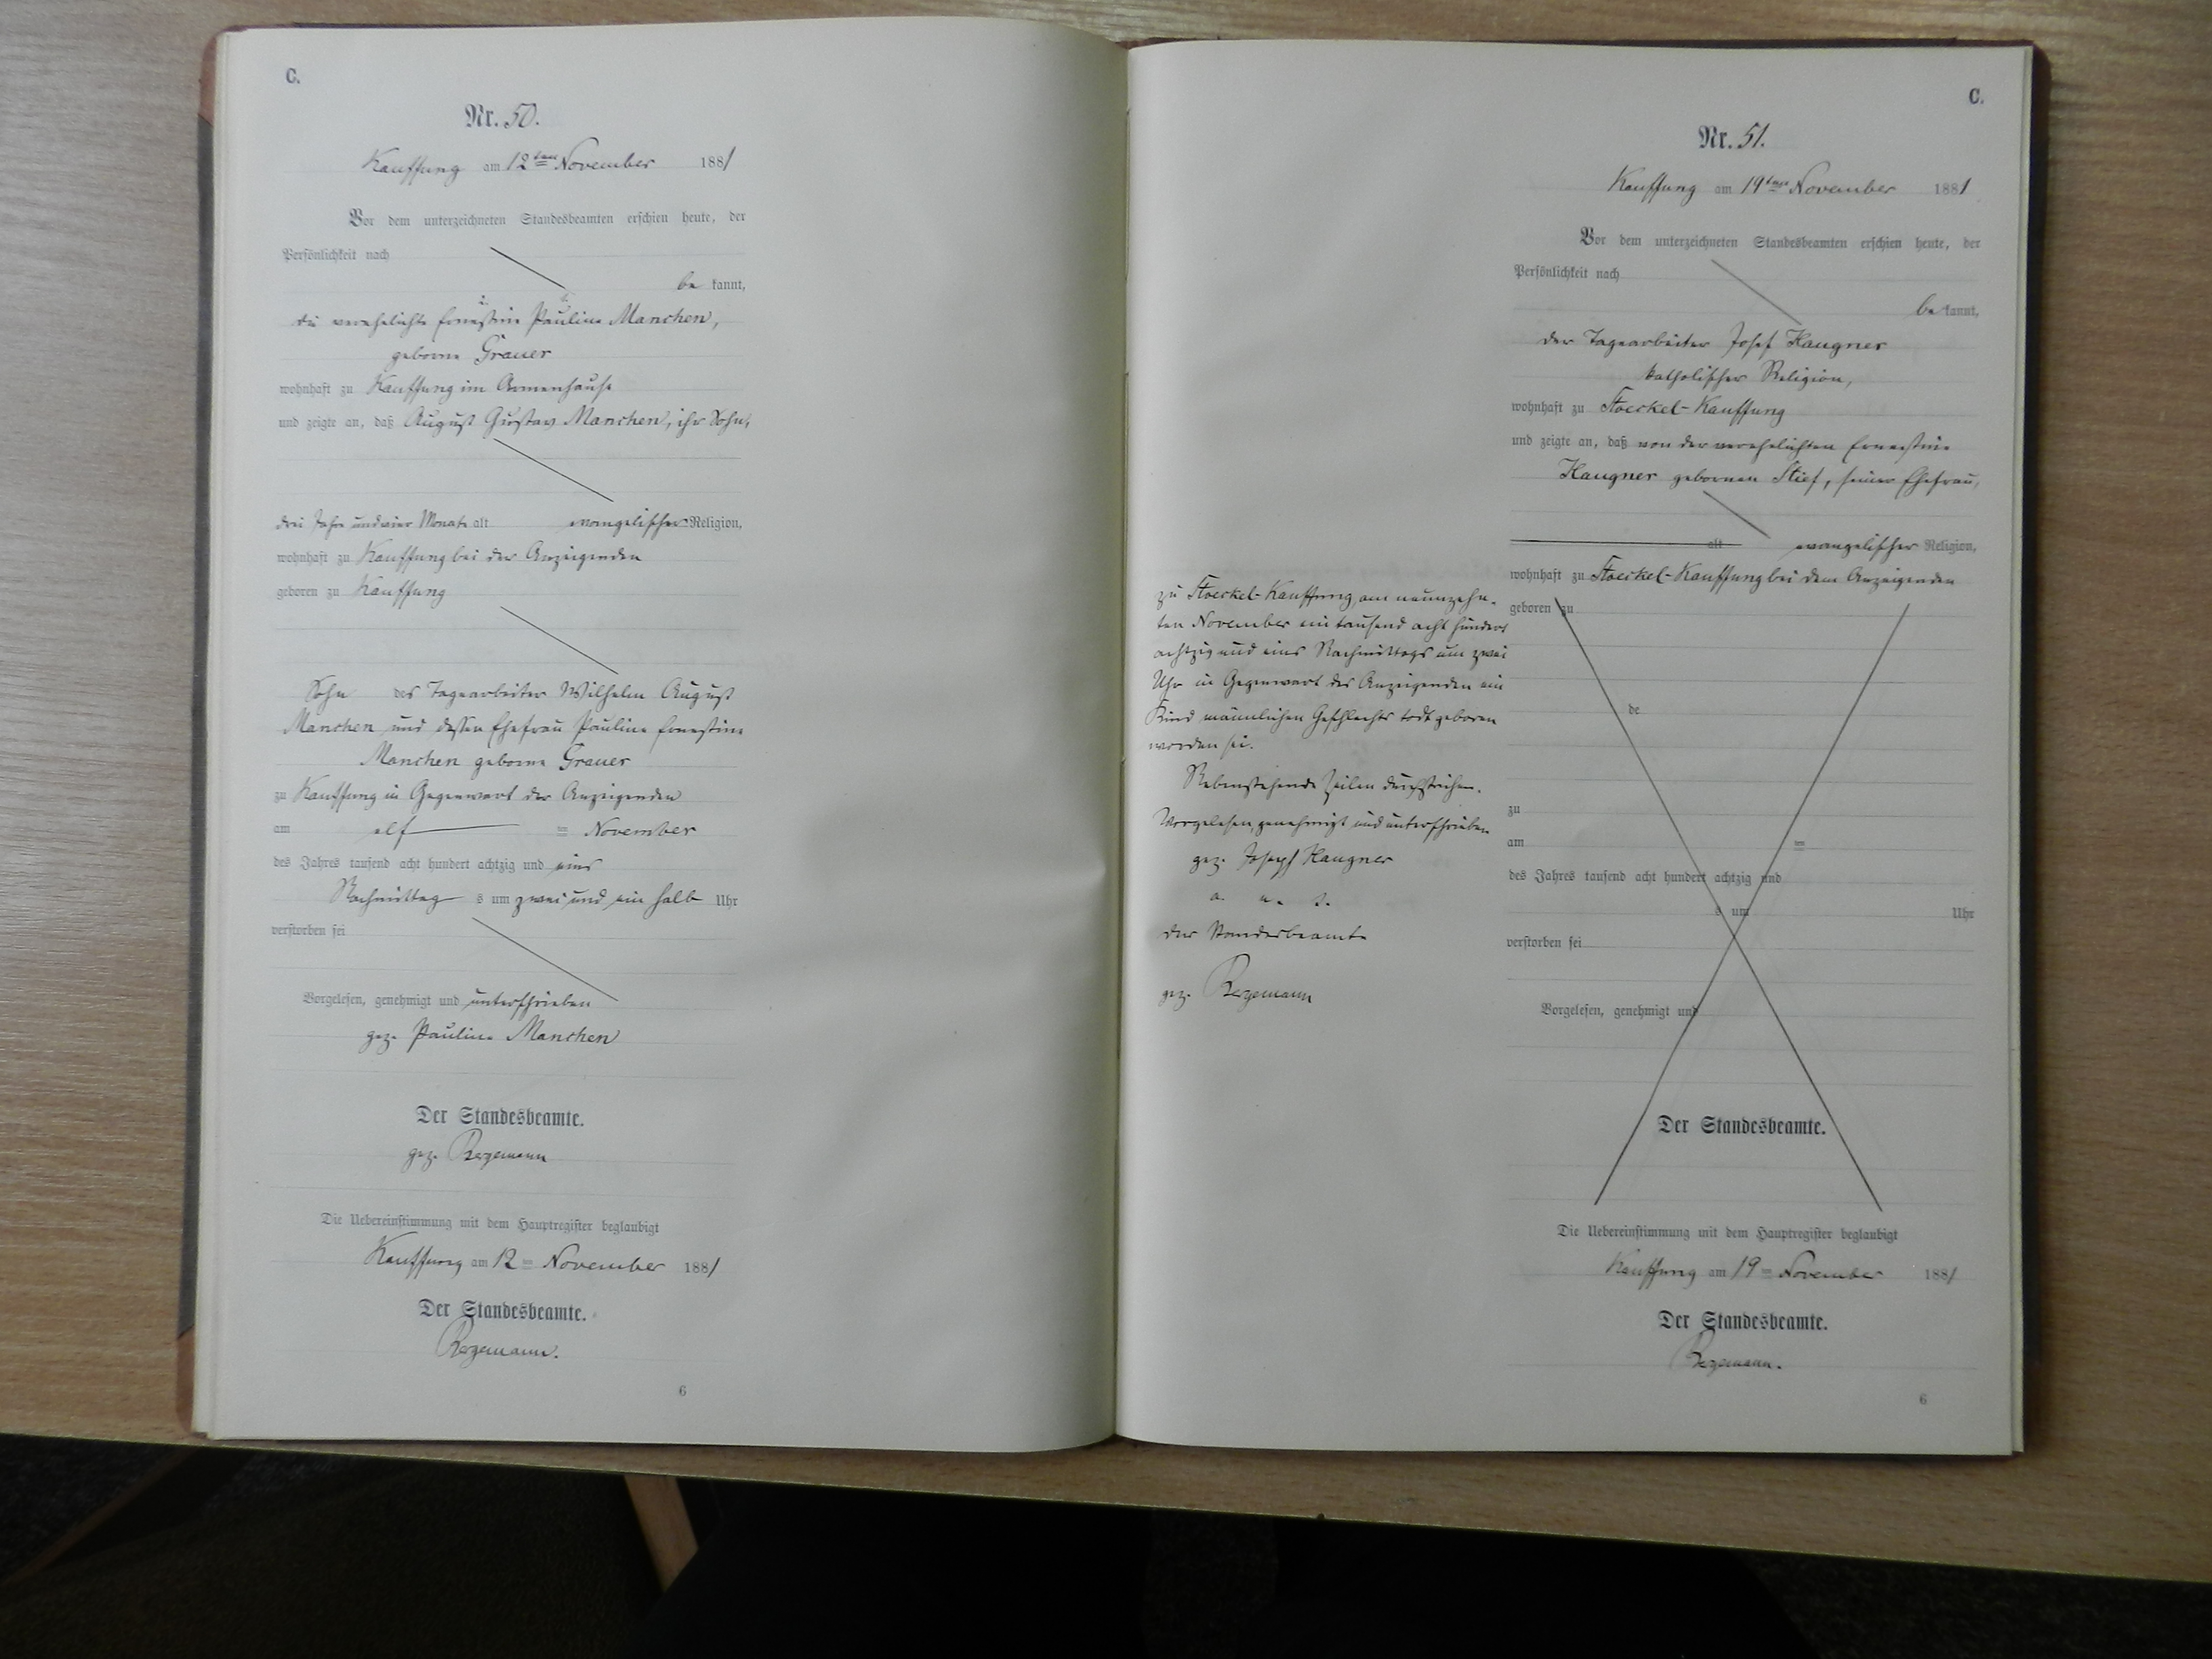 C.
Nr. 50.
Kauffung am 12ten November 1881
Vor dem unterzeichneten Standesbeamten erschien heute, der
Persönlichkeit nach
be kannt,
die verehelichte Ernestine Pauline Manchen,
geborne Grauer
wohnhaft zu Kauffung im Armenhause
und zeigte an, daß August Gustav Manchen, ihr Sohn,
drei Jahre und vier Monate alt evangelischer Religion,
wohnhaft zu Kauffung bei der Anzeigenden
geboren zu Kauffung
Sohn des Tagearbeiter Wilhelm August
Manchen und dessen Ehefrau Pauline Ernestine
Manchen geborne Grauer
zu Kauffung in Gegenwart der Anzeigenden
am elf ten November
des Jahres tausend acht hundert achtzig und eins
Nachmittag s um zwei und ein halb Uhr
verstorben sei
Vorgelesen, genehmigt und unterschrieben
gez. Pauline Manchen
Der Standesbeamte.
gez. Bergemann
Die Uebereinstimmung mit dem Hauptregister beglaubigt
Kauffung am 12 ten November 1881
Der Standesbeamte.
Bergemann.
6
C.
Nr. 51.
Kauffung am 19ten November 1881
Vor dem unterzeichneten Standesbeamten erschien heute, der
Persönlichkeit nach
be kannt,
der Tagearbeiter Josef Haugner
katholischer Religion,
wohnhaft zu Stoeckel-Kauffung
und zeigte an, daß von der verehelichten Ernestine
Haugner gebornen Stief, seiner Ehefrau,
alt evangelischer Religion,
wohnhaft zu Stoeckel-Kauffung bei dem Anzeigenden
geboren zu
de
zu
am ten
des Jahres tausend acht hundert achtzig und
s um Uhr
verstorben sei
Vorgelesen, genehmigt und
Der Standesbeamte.
zu Stoeckel-Kauffung am neunzehn-
ten November ein tausend acht hundert
achtzig und eins Nachmittags um zwei
Uhr in Gegenwart des Anzeigenden ein
Kind männlichen Geschlechts todt geboren
worden sei.
Nebenstehende Zeilen durchstrichen.
Vorgelesen, genehmigt und unterschrieben
gez. Joseph Haugner
a. u. s.
der Standesbeamte
gez. Bergemann
Die Uebereinstimmung mit dem Hauptregister beglaubigt
Kauffung am 19 ten November 1881
Der Standesbeamte.
Bergemann.
6